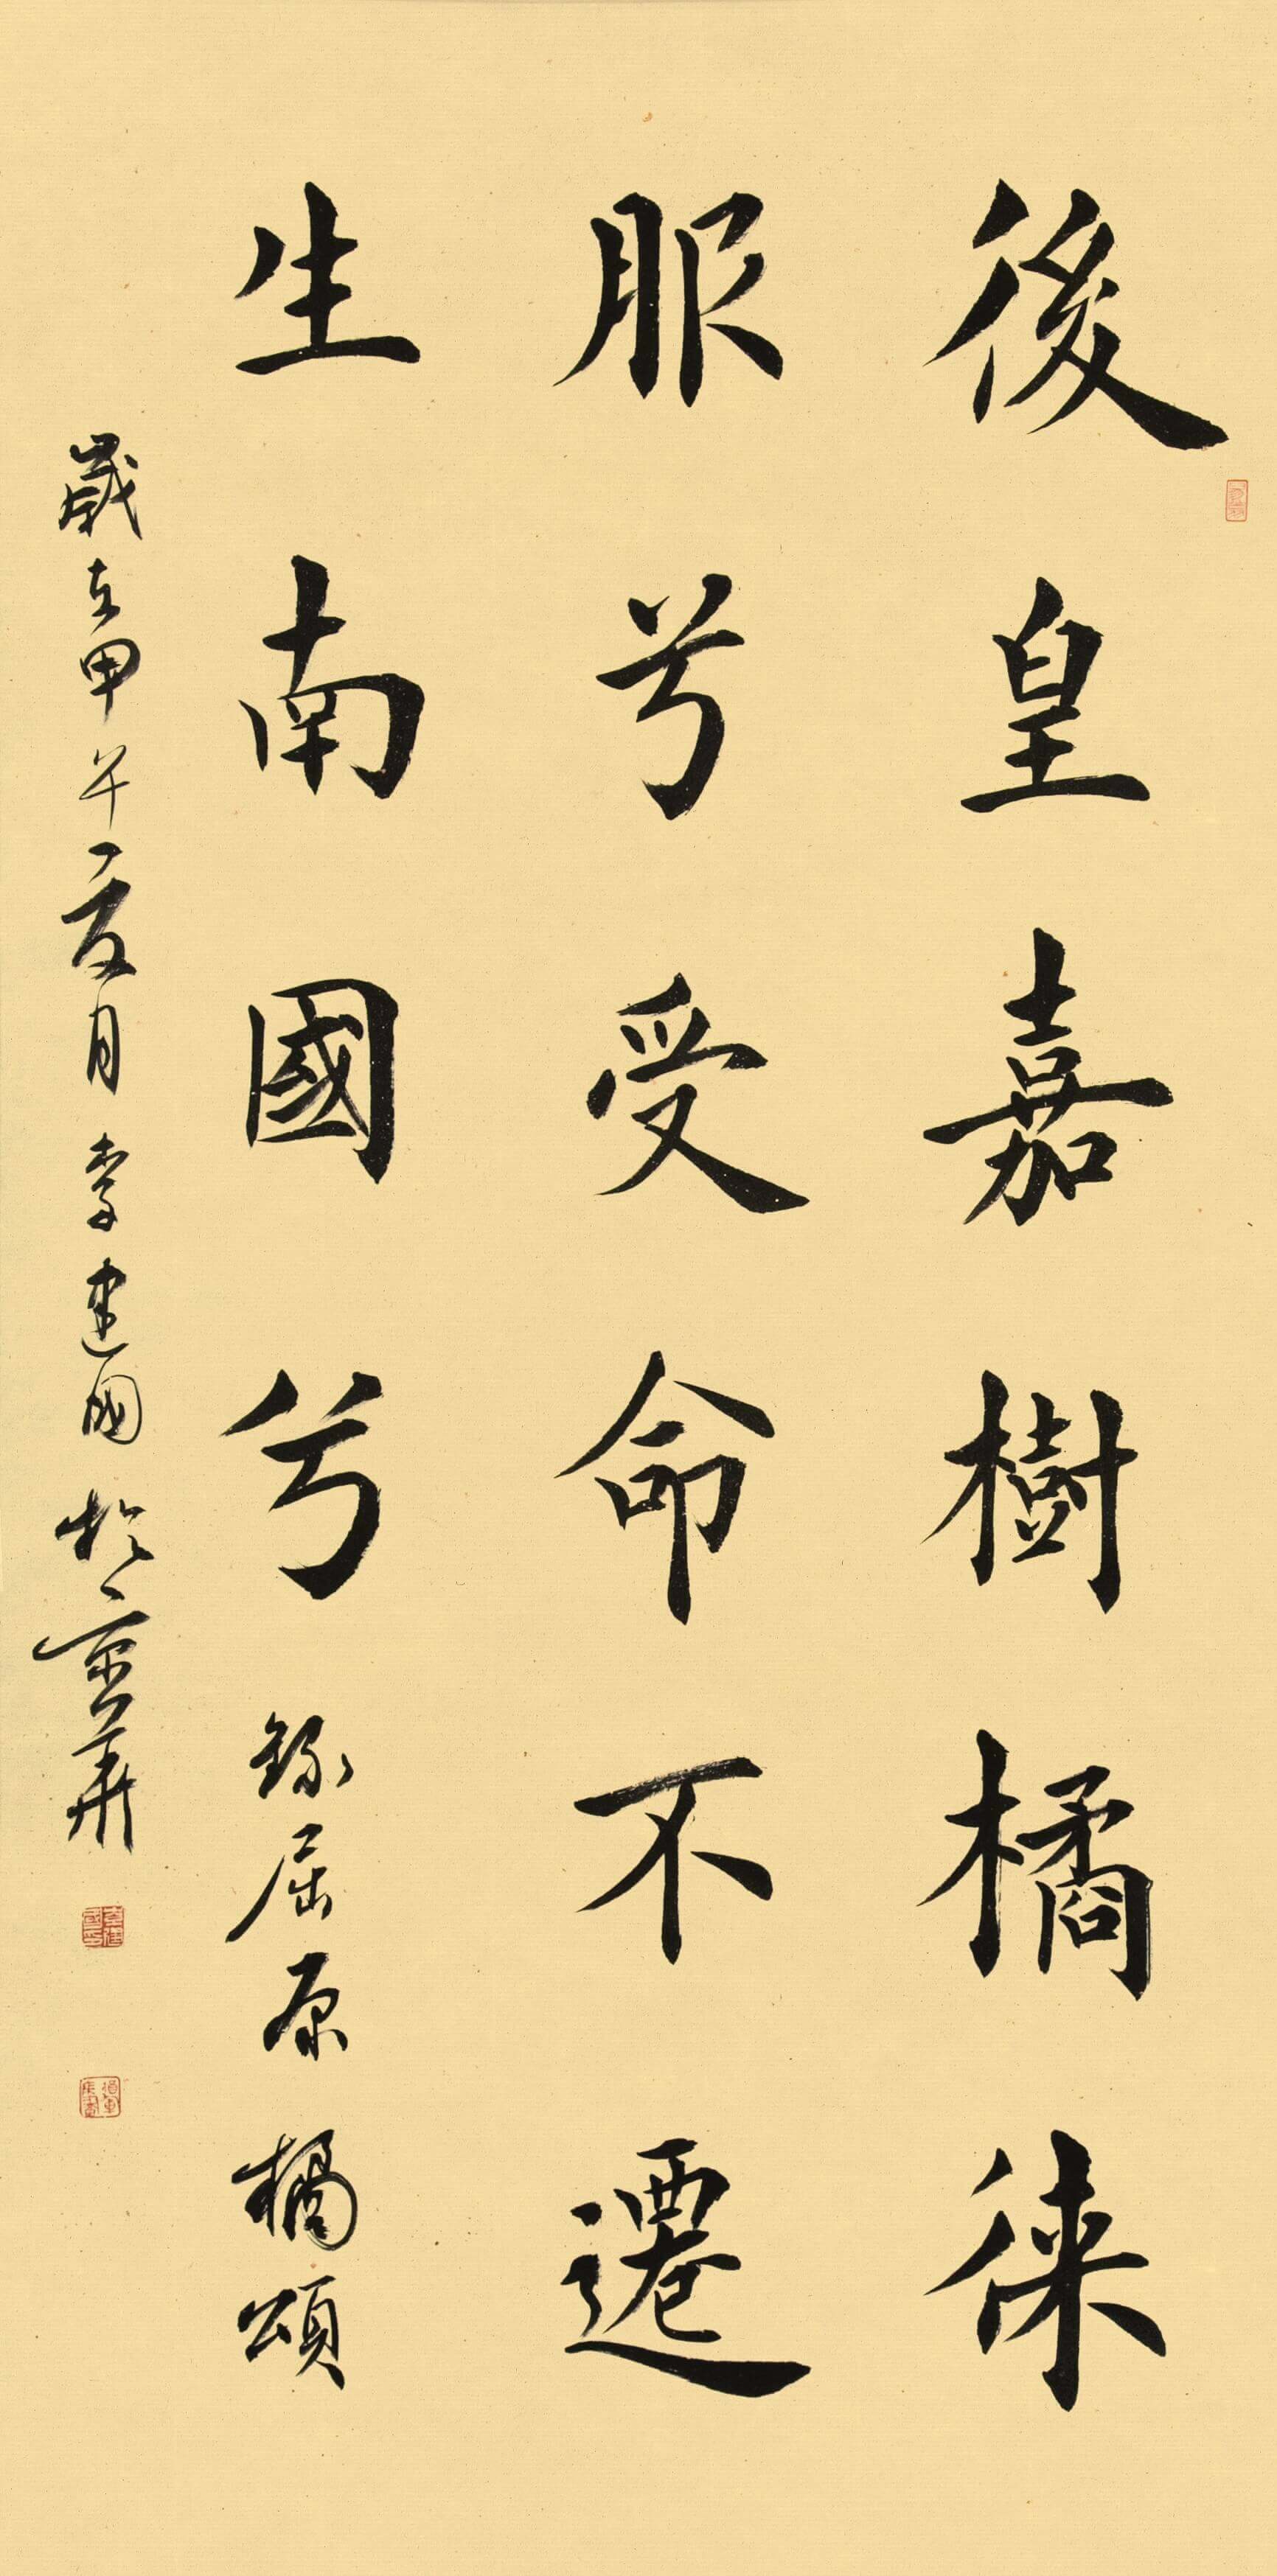 後皇嘉樹橘徠
服兮受命不遷
生南國兮 錄屈原橘頌
歲在甲午夏月李建國於京華